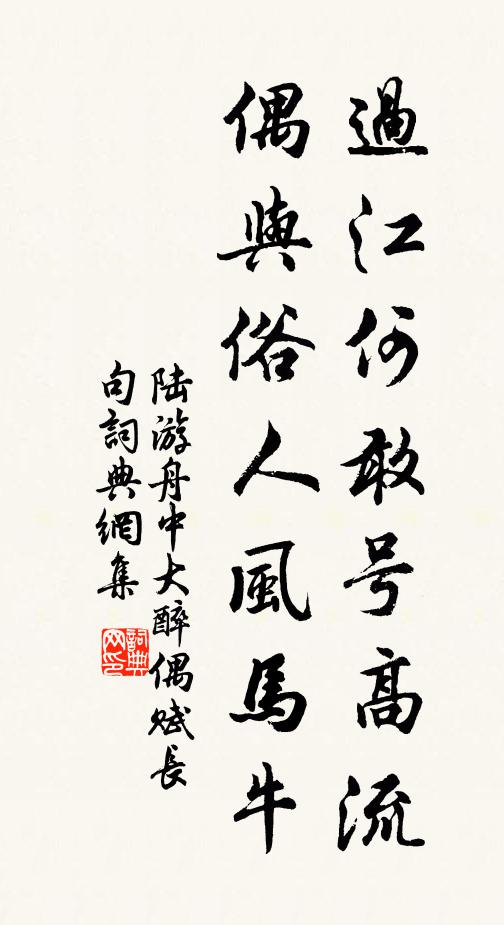 過江何敢号高流
偶與俗人風馬牛
陆游舟中大醉偶赋長
句詞典網集
詞典
网印